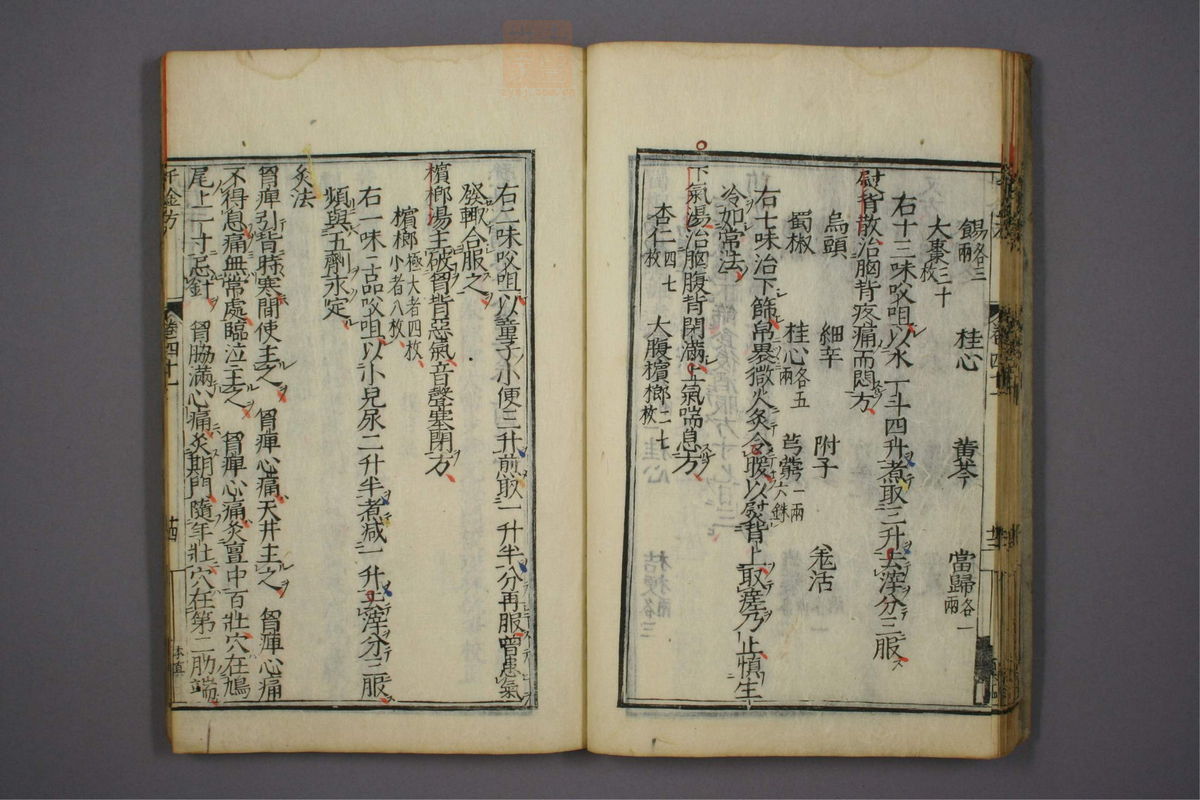 餳各三兩　桂心　黄芩　當歸各一兩
大棗三十枚
右十三味㕮咀以水一斗四升煮取三升去滓分三服
熨背散治胸背疼痛而悶方
烏頭　細辛　附子　羌活
蜀椒　桂心各五兩　芎藭一兩六銖
右七味治下篩帛裹微火炙令暖以熨背上取瘥乃止慎生
冷如常法
下氣湯治胸腹背閉滿上氣喘息方
杏仁四七枚　大腹檳榔二七枚
右二味㕮咀以童子小便三升煎取一升半分再服曾患氣
發輒合服之
檳榔湯主破胷背惡氣音聲塞閉方
檳榔極大者四枚小者八枚
右一味二品㕮咀以小兒尿二升半煮减一升去滓分三服
頻與五劑永定
灸法
胷痺引背時寒間使主之　胷痺心痛天井主之　胷痺心痛
不得息痛無常處臨泣主之　胷痺心痛灸亶中百壯穴在鳩
尾上一寸忌針　胷脇滿心痛灸期門隨年壯穴在第二肋端
千金方　卷四十一